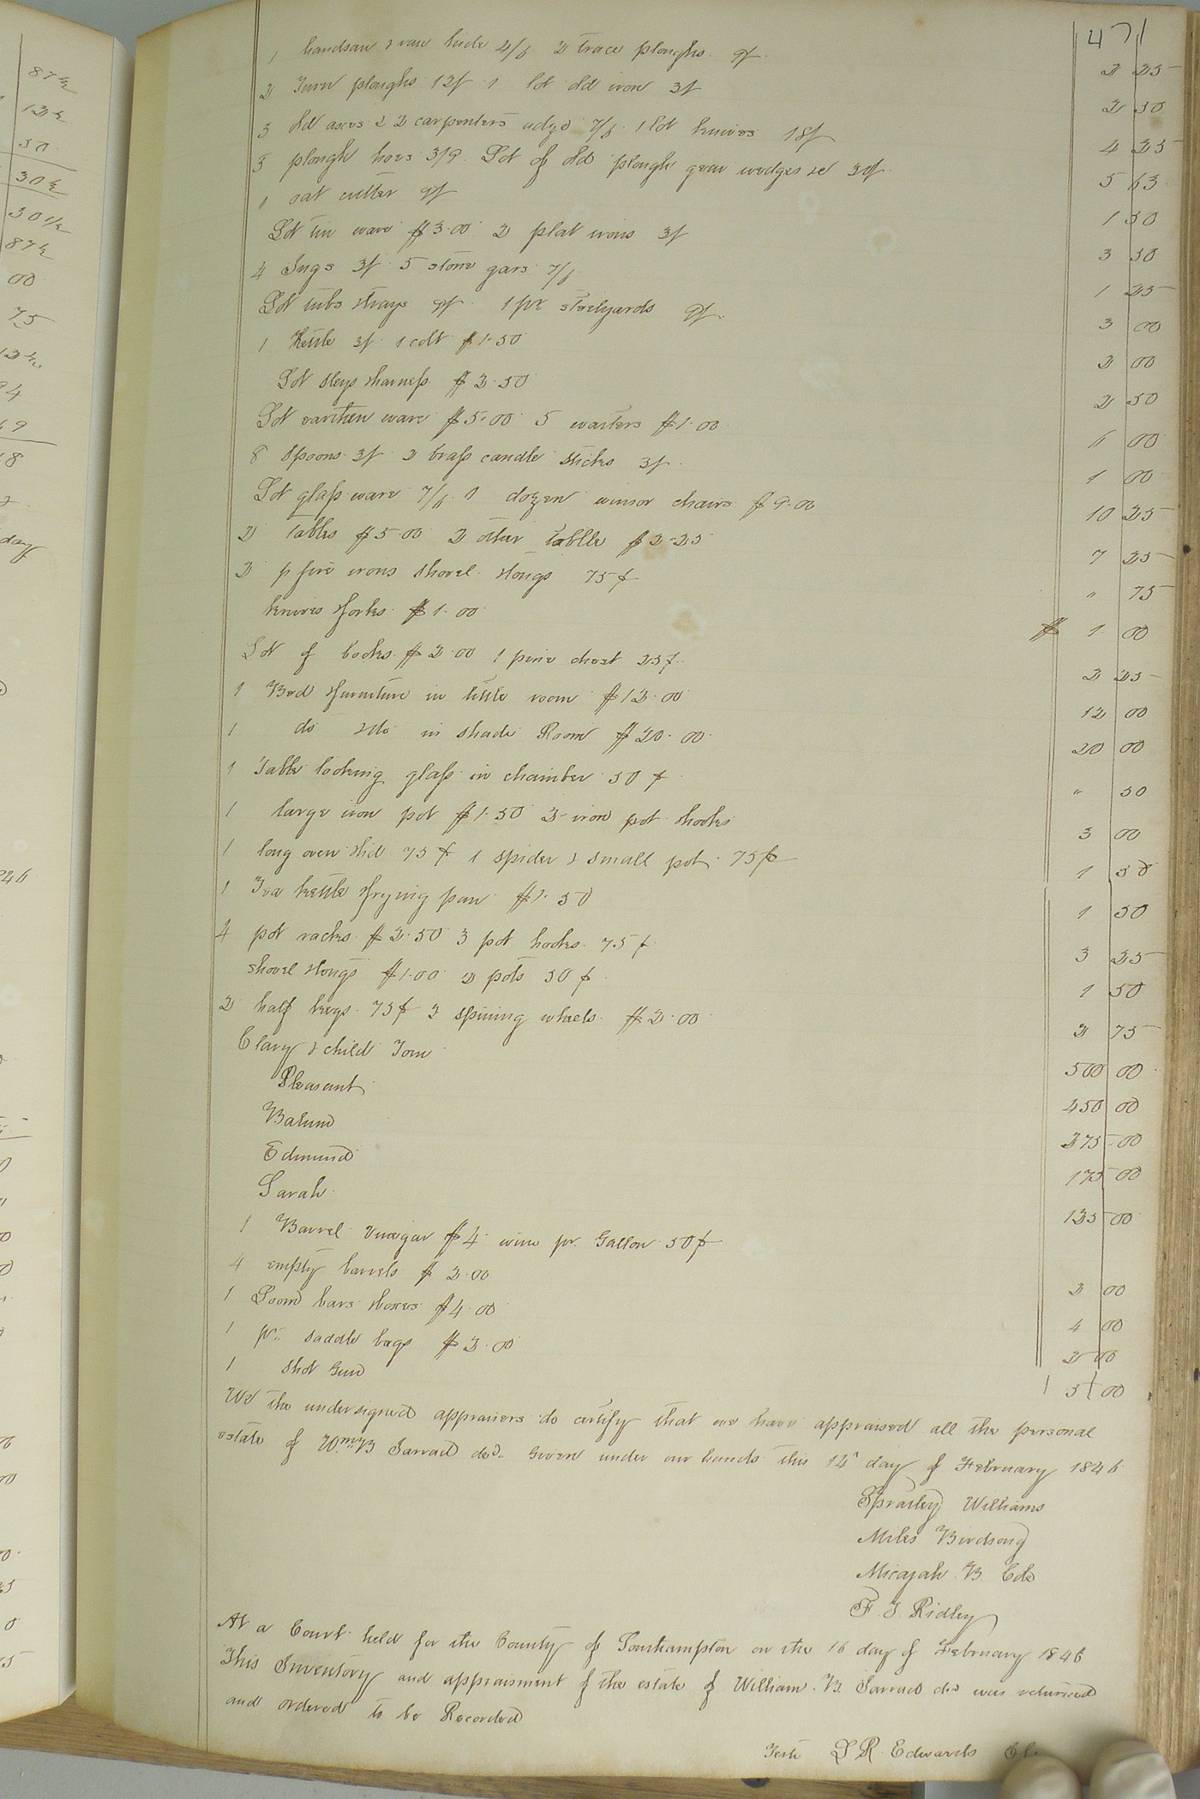 47
1 handsaw & raw hide 4/6 2 trace ploughs 9/ 2 25
2 Turn ploughs 12/ 1 lot old iron 3/ 2 50
3 old axes & 2 carpenters adze 7/6 1 lot knives 18/ 4 25
3 plough hoes 3/9 Lot of old plough gear wedges &c 30/ 5 63
1 oat cutter 9/ 1 50
Lot tin ware $3.00 2 flat irons 3/ 3 50
4 Jugs 3/ 5 stone gars 7/6 1 25
Lot tubs & trays 9/ 1 pr steelyards 9/ 3 00
1 Kettle 3/ 1 colt $1.50 2 00
Lot sleys & harness $2.50 2 50
Lot earthen ware $5.00 5 waiters $1.00 6 00
8 spoons 3/ 2 brass candle sticks 3/ 1 00
Lot glass ware 7/6 1 dozen winsor chairs $9.00 10 25
2 tables $5.00 2 other table $2.25 7 25
2 p fire irons shovel & tongs 75¢ " 75
knives & forks $1.00 $ 1 00
Lot of books $2.00 1 pine chest 25¢ 2 25
1 Bed & furniture in little room $12.00 12 00
1 do & do in shade Room $20.00 20 00
1 Table looking glass in chamber 50¢ " 50
1 large iron pot $1.50 2 iron pot & hooks 3 00
1 long oven & lid 75¢ 1 spider & small pot 75¢ 1 50
1 Tea kettle & frying pan $1.50 1 50
4 pot racks $2.50 3 pot hooks 75¢ 3 25
shovel & tongs $1.00 2 pots 50¢ 1 50
2 half kegs 75¢ 3 spining wheels $2.00 2 75
Clary & child Tom 500 00
Pleasant 450 00
375 00
Edmund 175 00
Sarah 125 00
1 Barrel vinegar $4 wine pr. Gallon 50¢
4 empty barrels $2.00 2 00
1 Loom bars & boxes $4.00 4 00
1 pr. saddle bags $2.00 2 00
1 Shot Gun 5 00
We the undersigned appraisers do certify that we have appraised all the personal
estate of Wm B Jarrad decd. Given under our hands this 12 day of February 1846
Spratley Williams
Miles Birdsong
Micajah B. Cole
F. T. Ridley
At a Court held for the County of Southampton on the 16 day of February 1846
This Inventory and appraisment of the estate of William B. Jarrad decd was returned
and ordered to be Recorded
Teste L R Edwards Cl.